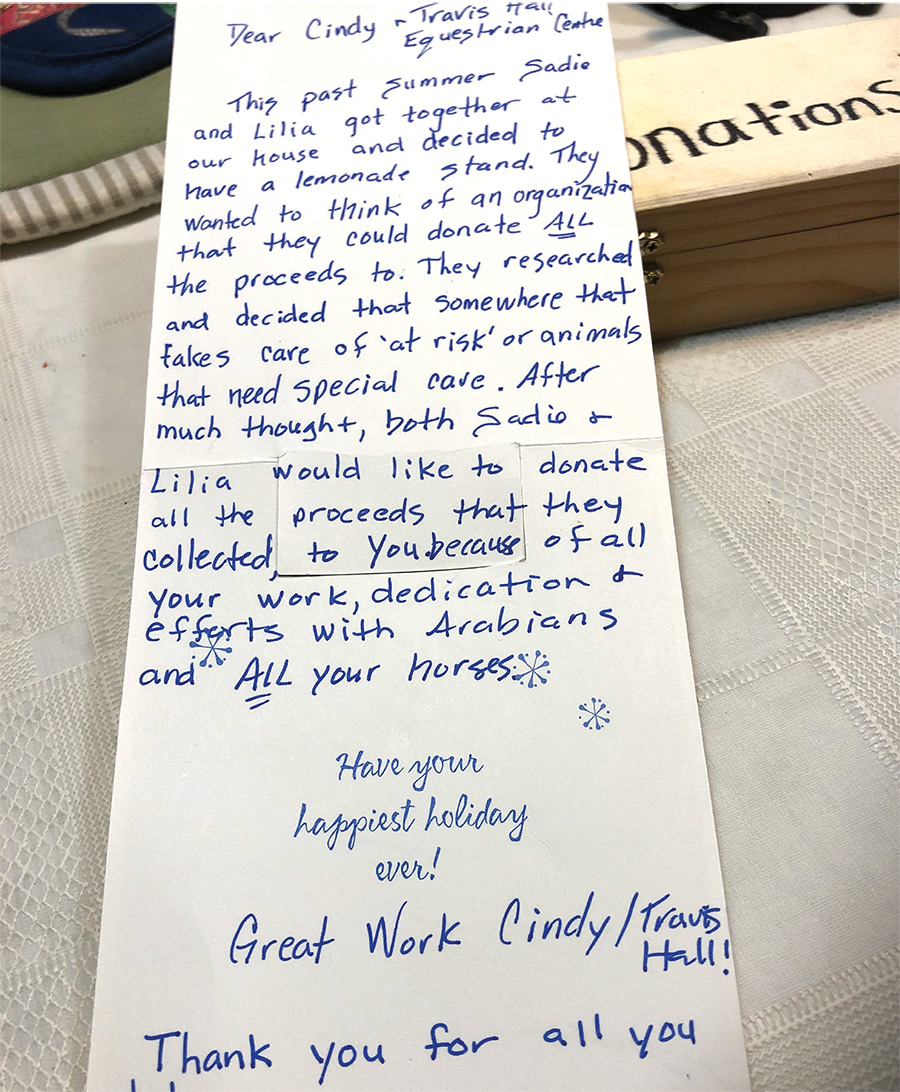 Dear Cindy & Travis Hall
Equestrian Centre
This past summer Sadie
and Lilia got together at
our house and decided to
have a lemonade stand. They
wanted to think of an organization
that they could donate ALL
the proceeds to. They researched
and decided that somewhere that
takes care of 'at risk' or animals
that need special care. After
much thought, both Sadie &
Lilia would like to donate
all the proceeds that they
collected, to You because of all
your work, dedication &
efforts with Arabians
and ALL your horses.
Have your
happiest holiday
ever!
Great Work Cindy/Travis
Hall!
Thank you for all you
onations